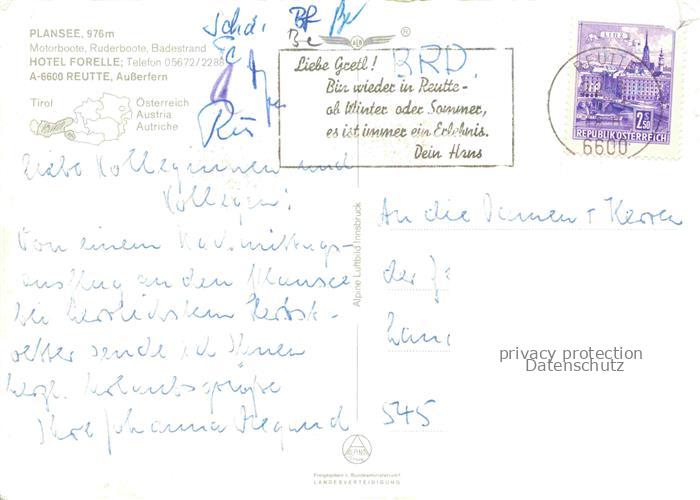 PLANSEE, 976m
Motorboote, Ruderboote, Badestrand
HOTEL FORELLE; Telefon 05672/2288
A-6600 REUTTE, Außerfern
Tirol
Österreich
Austria
Autriche
BRD
Liebe Gretl!
Bin wieder in Reutte-
ob Winter oder Sommer,
es ist immer ein Erlebnis.
Dein Hans
LINZ
2.50
S
REPUBLIK ÖSTERREICH
6600
Liebe Kolleginnen und
Kollegen!
Von einem Nachmittags-
ausflug an den Plansee
bei herrlichstem Herbst-
wetter sende ich Ihnen
herzl. Urlaubsgrüße
Ihre Johanna
Alpine Luftbild Innsbruck
An die Damen + Herren
der
545
privacy protection
Datenschutz
ALPINE
Freigegeben v. Bundesministerium f.
LANDESVERTEIDIGUNG